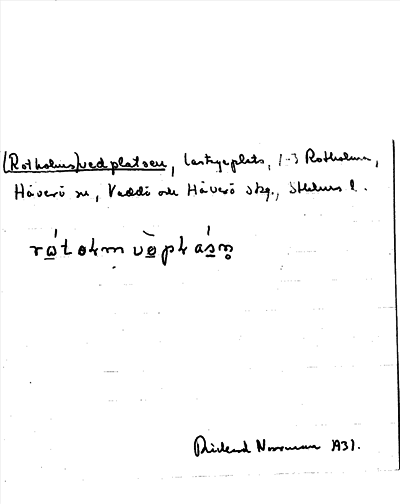 (Rotholms)vedplatsen, lastageplats, 1-3 Rotholma,
Häverö sn, Väddö och Häverö skg., Sthlms l.
rátolm vèplásn̥
Rickard Norrman 1931.